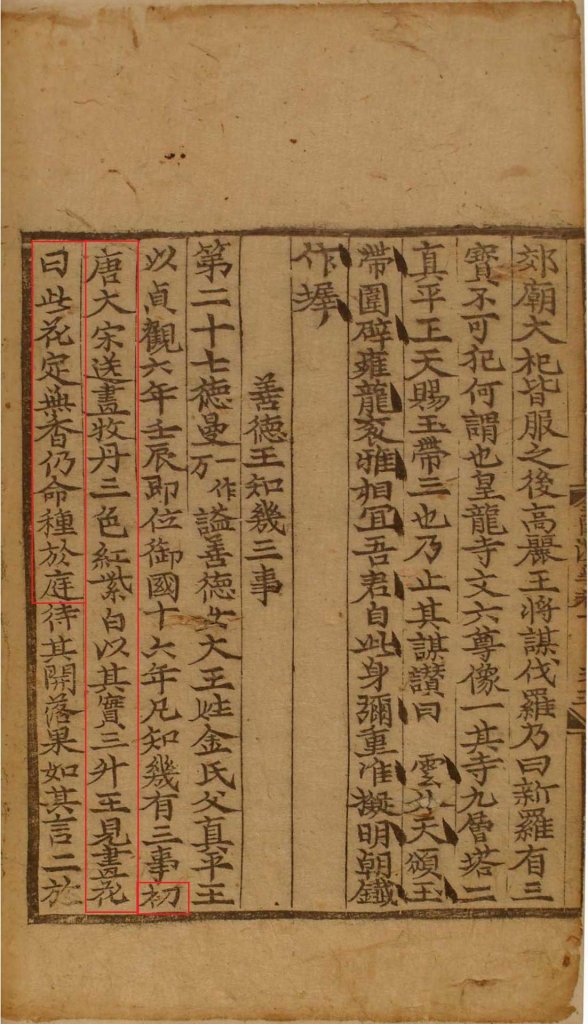 郊廟大祀皆服之後高麗王將謀伐羅乃曰新羅有三
寶不可犯何謂也皇龍寺文六尊像一其寺九層塔二
真平王天賜玉帶三也乃止其謀讃曰　雲外天頒玉
帶圍辟雍龍衮雅相宜吾君自此身彌重准擬明朝鐵
作墀
善徳王知幾三事
第二十七徳曼一作万謚善徳女大王姓金氏父真平王
以貞觀六年壬辰即位御國十六年凡知幾有三事初
唐大宋送畫牧丹三色紅紫白以其實三升王見畫花
曰此花定無香仍命種於庭待其開落果如其言二於